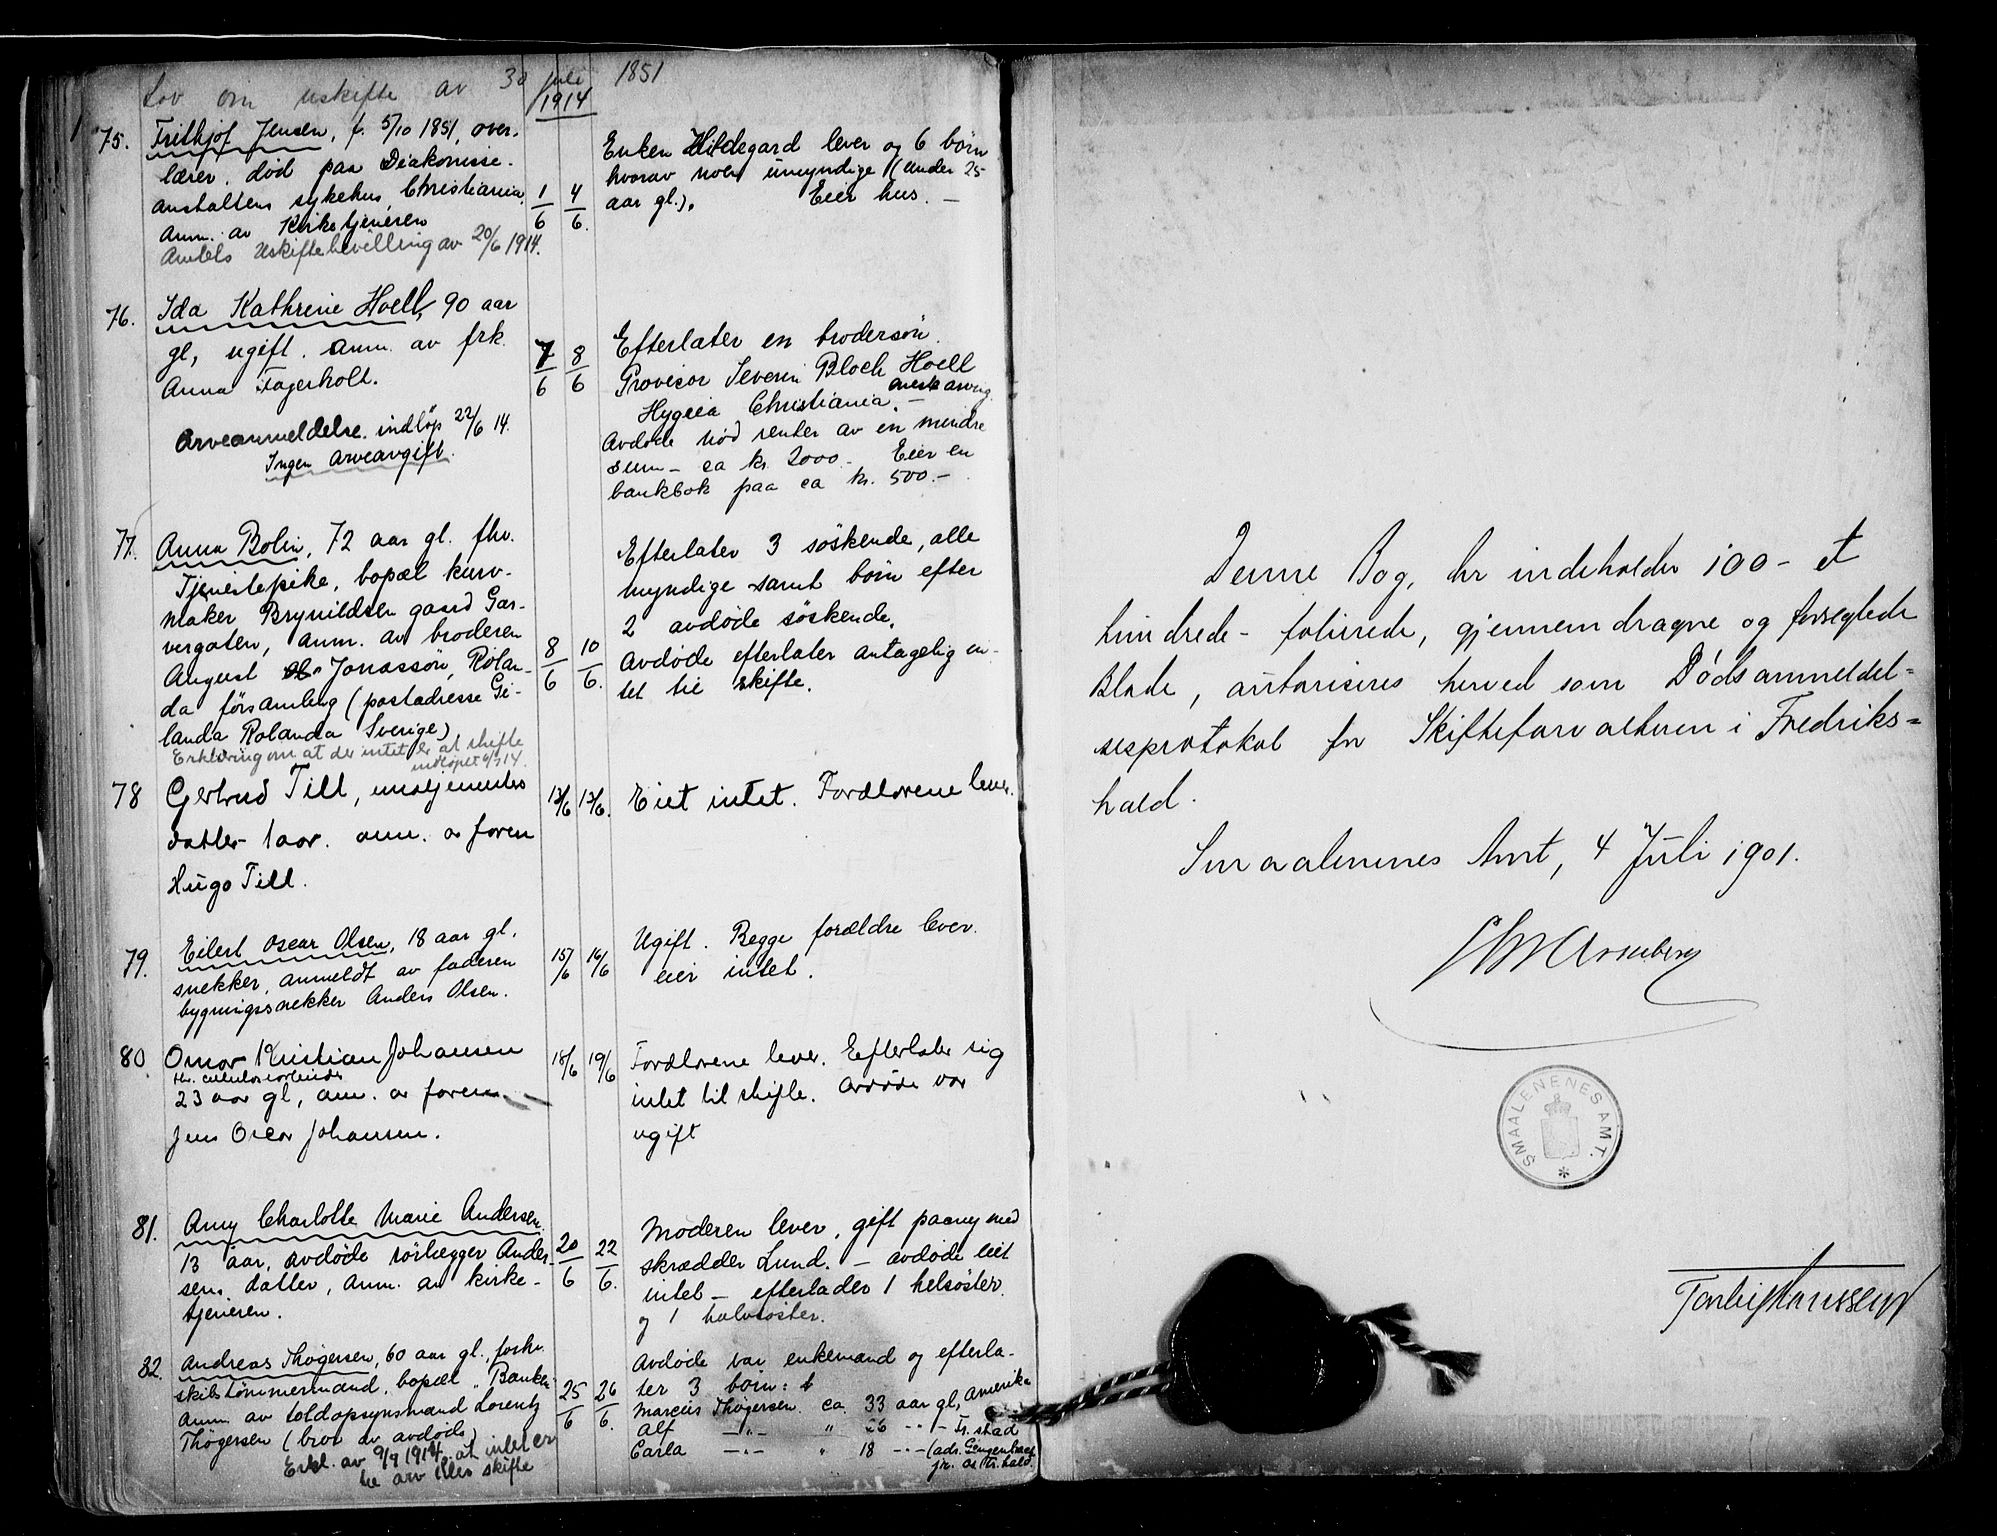 Lov om uskifte av 30 juli 1851
1914
75. Frithjof Jensen, f. 5/10 1851, over-
lærer. død paa Diakonisse-
anstaltens sykehus, Christiania,
anm. av Kirketjeneren
Amtets Uskiftebevilling av 20/6 1914.
1/6 4/6.
Enken Hildegard lever og 6 börn
hvorav noen umyndige (under 25
aar gl.). Eier hus. —
76. Ida Kathrine Hoell, 90 aar
gl, ugift. anm. av frk.
Anna Fagerholt.
Arveanmeldelse indløp 22/6 14.
Ingen arveavgift.
7/6 8/6
Efterlater en brodersön
Provisor Severin Bloch Hoell
eneste arving.
Hygiea Christiania. —
Avdøde nød renter av en mindre
sum – ca kr. 2000.- Eier en
bankbok paa ca kr. 500.-
77. Anna Bolin, 72 aar gl. fhv.
Tjenestepike, bopæl kurv-
maker Brynildsen gaard Gar-
vergaten, anm. av broderen
August Jonassön, Rölan-
da församling (postadresse Gi-
landa Rolanda Sverige)
Erklæring om at der intet er at skifte
indløpet 6/7 14.
8/6 10/6.
Efterlater 3 söskende, alle
myndige samt börn efter
2 avdøde söskende.
Avdøde efterlater antagelig in-
tet til skifte.
78 Gertrud Till, snitjenentes
datter 1 aar. anm. av faren
Hugo Till.
13/6 13/6.
Eiet intet. Forældrene lever.
79. Eilert Oscar Olsen, 18 aar gl.
snekker, anmeldt av faderen
bygningssnekker Anders Olsen.
15/6 16/6
Ugift. Begge forældre lever.
eier intet.
80. Omar Kristian Johansen
23 aar gl, anm. av faren
Jens Oscar Johansen.
18/6 19/6
Forældrene lever. Efterlater sig
intet til skifte. Avdøde var
ugift
81. Amy Charlotte Marie Andersen.
13 aar, avdøde rörlægger Ander-
sens datter, anm. av kirke-
tjeneren.
20/6 22/6.
Moderen lever, gift paany med
skrædder Lund. – avdøde eiet
intet – efterlader 1 helsöster
og 1 halvsöster.
82. Andreas Thøgersen, 60 aar gl., forhv.
skibstömmermand, bopæl "Banken
anm. av toldopsynsmand Lorentz
Thögersen (bror av avdøde)
Erkl. av 9/7 1914 at intet er
til arv eller skifte
25/6 26/6.
Avdøde var enkemand og efterla-
ter 3 börn:
Marcus Thögersen. ca. 33 aar gl, Amerika
Alf —"— " 26 - " - Fr.stad
Carla —"— " 18 -"- (adr. Gengenbach
jr. Fr.hald.
Denne Bog, der indeholder 100 - et
hundrede - folierede, gjennemdragne og forseglede
Blade, autoriseres herved som Dødsanmeldel=
sesprotokol for Skifteforvalteren i Fredriks=
hald.
Smaalenenes Amt, 4 Juli 1901.
SMAALENENES AMT.